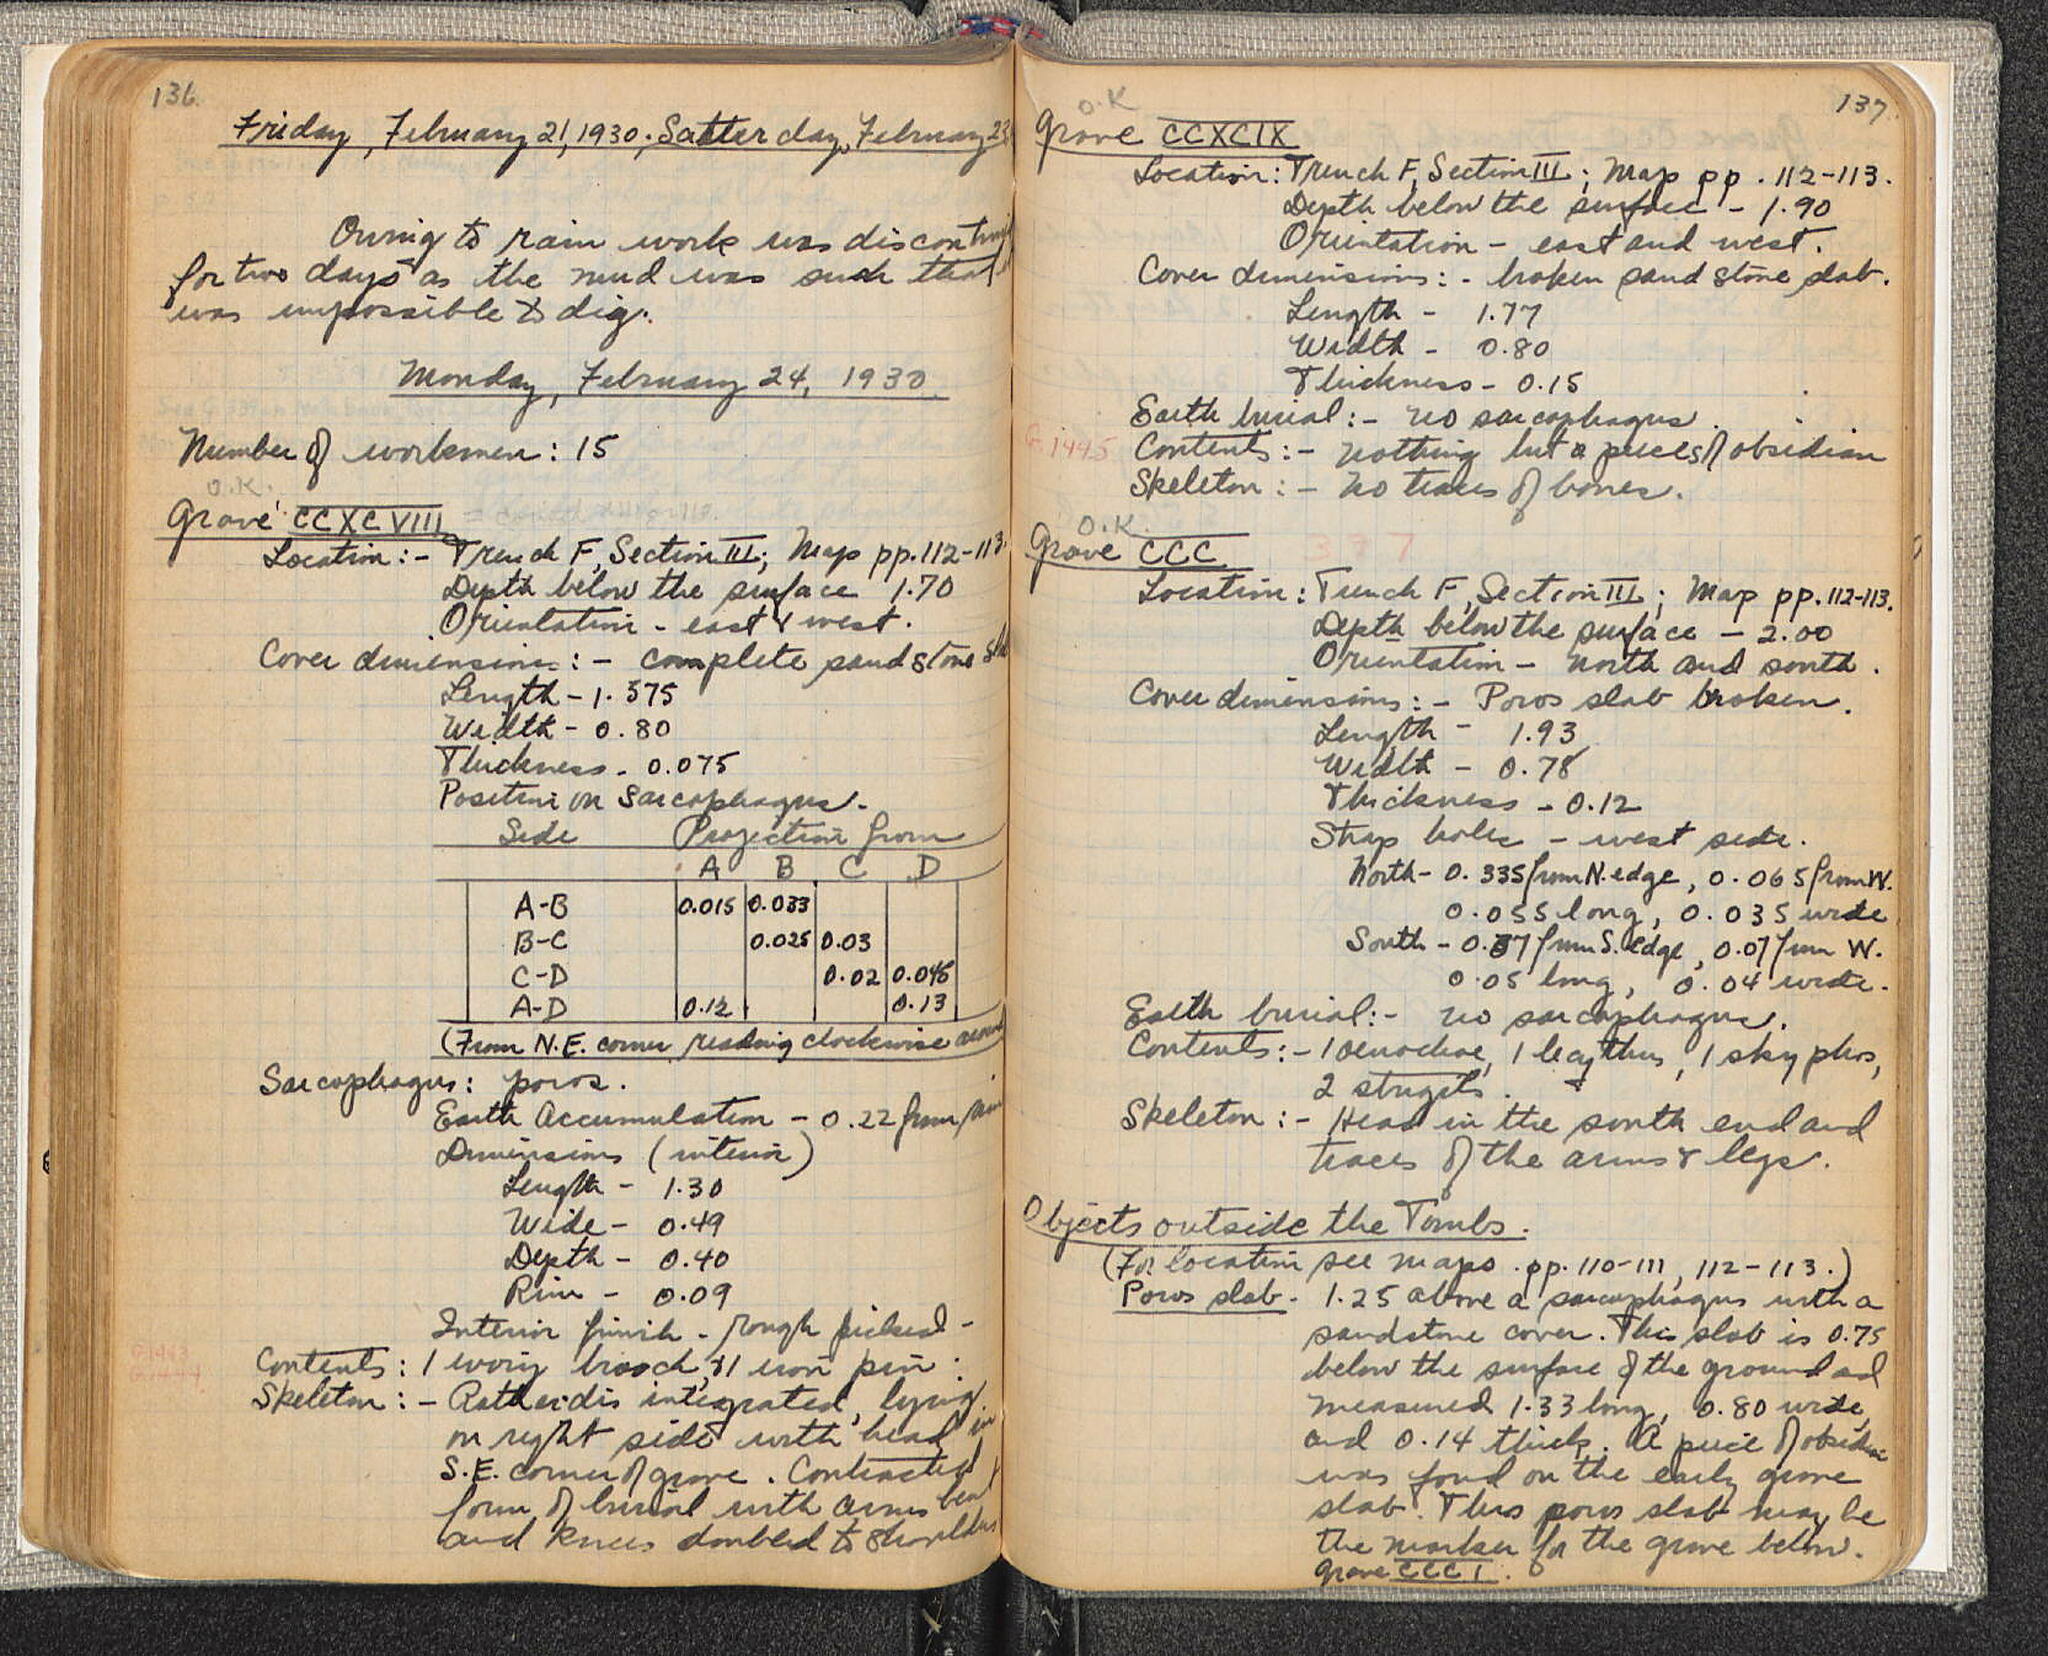 136.
Friday, February 21, 1930; Satterday, February 23
Owing to rain work was discontinu
for two days as the mud was such that
was impossible to dig.
Monday, February 24, 1930
Number of workmen: 15
O.K.
Grave CCXCVIII
Location:- Trench F, Section III; Map pp. 112-113.
Depth below the surface 1.70
Orientation - east & west.
Cover dimensions:- complete sandstone sla
Length - 1.575
Width - 0.80
Thickness - 0.075
Position on Sarcophagus.
Side Projection from
A B C D
A-B 0.015 0.033
B-C 0.025 0.03
C-D 0.02 0.045
A-D 0.12 0.13
(From N.E. corner reading clockwise around
Sarcophagus: poros.
Earth Accumulation - 0.22 from rim
Dimensions (interior)
Length - 1.30
Wide - 0.49
Depth - 0.40
Rim - 0.09
Interior finish - rough picked -
G1443
G1444.
Contents: 1 ivory brooch, & 1 iron pin.
Skeleton:- Rather disintegrated, lying
on right side with head in
S.E. corner of grave. Contracted
form of burial with arms bent
and knees doubled to shoulders
137.
O.K
Grave CCXCIX
Location: Trench F, Section III; Map pp. 112-113.
Depth below the surface - 1.90
Orientation - east and west.
Cover dimensions:- broken sand stone slab.
Length - 1.77
Width - 0.80
Thickness - 0.15
Earth burial:- no sarcophagus.
G.1445 Contents:- nothing but a pieces of obsidian
Skeleton:- No traces of bones.
O.K.
Grave CCC 377
Location: Trench F, Section III; Map pp. 112-113.
Depth below the surface - 2.00
Orientation - North and south.
Cover dimensions:- Poros slab broken.
Length - 1.93
Width - 0.78
Thickness - 0.12
Strap holes - west side.
North - 0.335 from N. edge, 0.065 from W.
0.055 long, 0.035 wide
South - 0.37 from S. edge, 0.07 from W.
0.05 long, 0.04 wide.
Earth burial:- no sarcophagus.
Contents:- 1 oenochoe, 1 lecythus, 1 skyphos,
2 strigils.
Skeleton:- Head in the south end and
traces of the arms & legs.
Objects outside the Tombs.
(For location see maps pp. 110-111, 112-113.)
Poros slab - 1.25 above a sarcophagus with a
sandstone cover. This slab is 0.75
below the surface of the ground and
measured 1.33 long, 0.80 wide,
and 0.14 thick. A piece of obsidian
was fond on the early grave
slab. This poros slab may be
the marker for the grave below.
Grave CCCI.